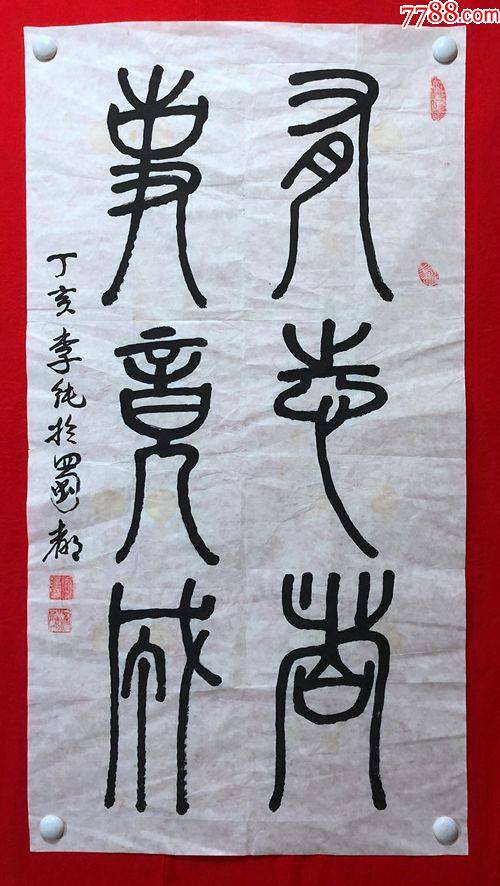 7788.com
有志者
事竟成
丁亥李纯於蜀都